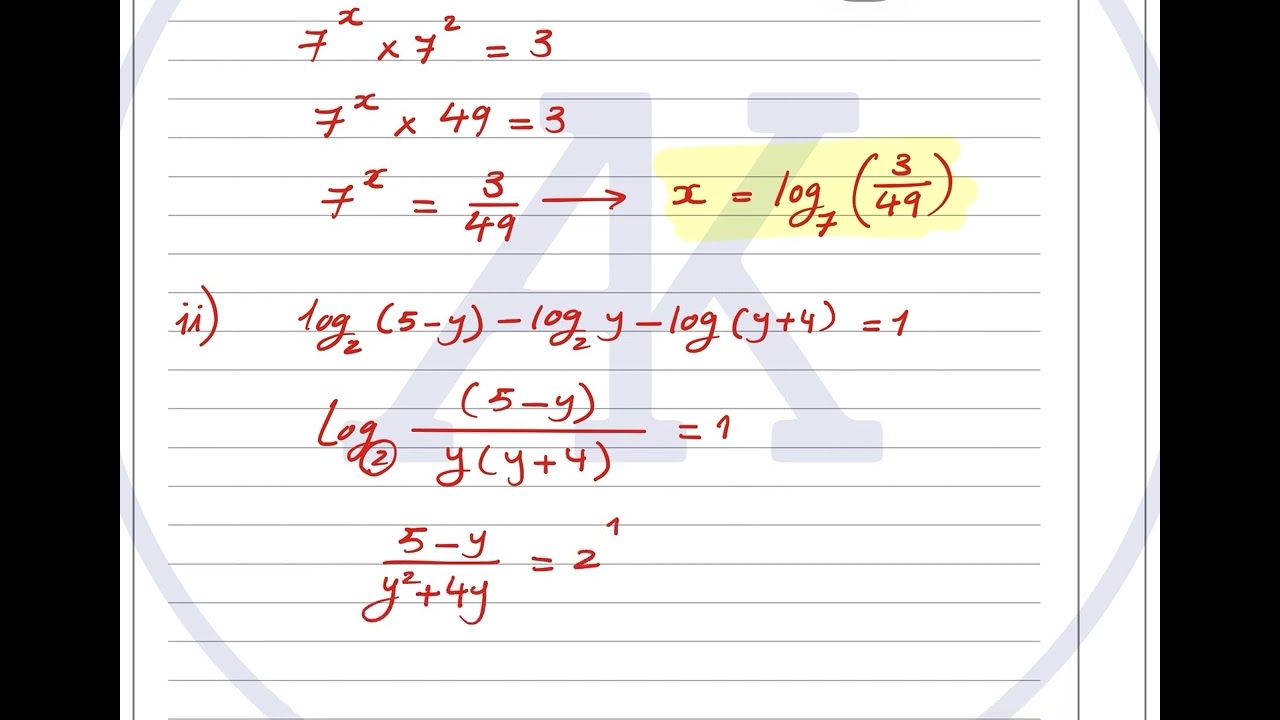 7^x × 7^2 = 3
7^x × 49 = 3
7^x = 3/49 → x = log_7 (3/49)
ii) log_2 (5-y) - log_2 y - log (y+4) = 1
log_2 (5-y)/y(y+4) = 1
5-y/y^2+4y = 2^1
AK